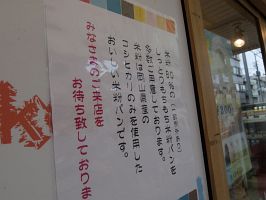 米粉80%の
しっとりもちもち米粉パンを
多数ご用意しております。
米粉は岡山県産の
コシヒカリのみを使用した
おいしい米粉パンです。
みなさまのご来店を
お待ち致しております